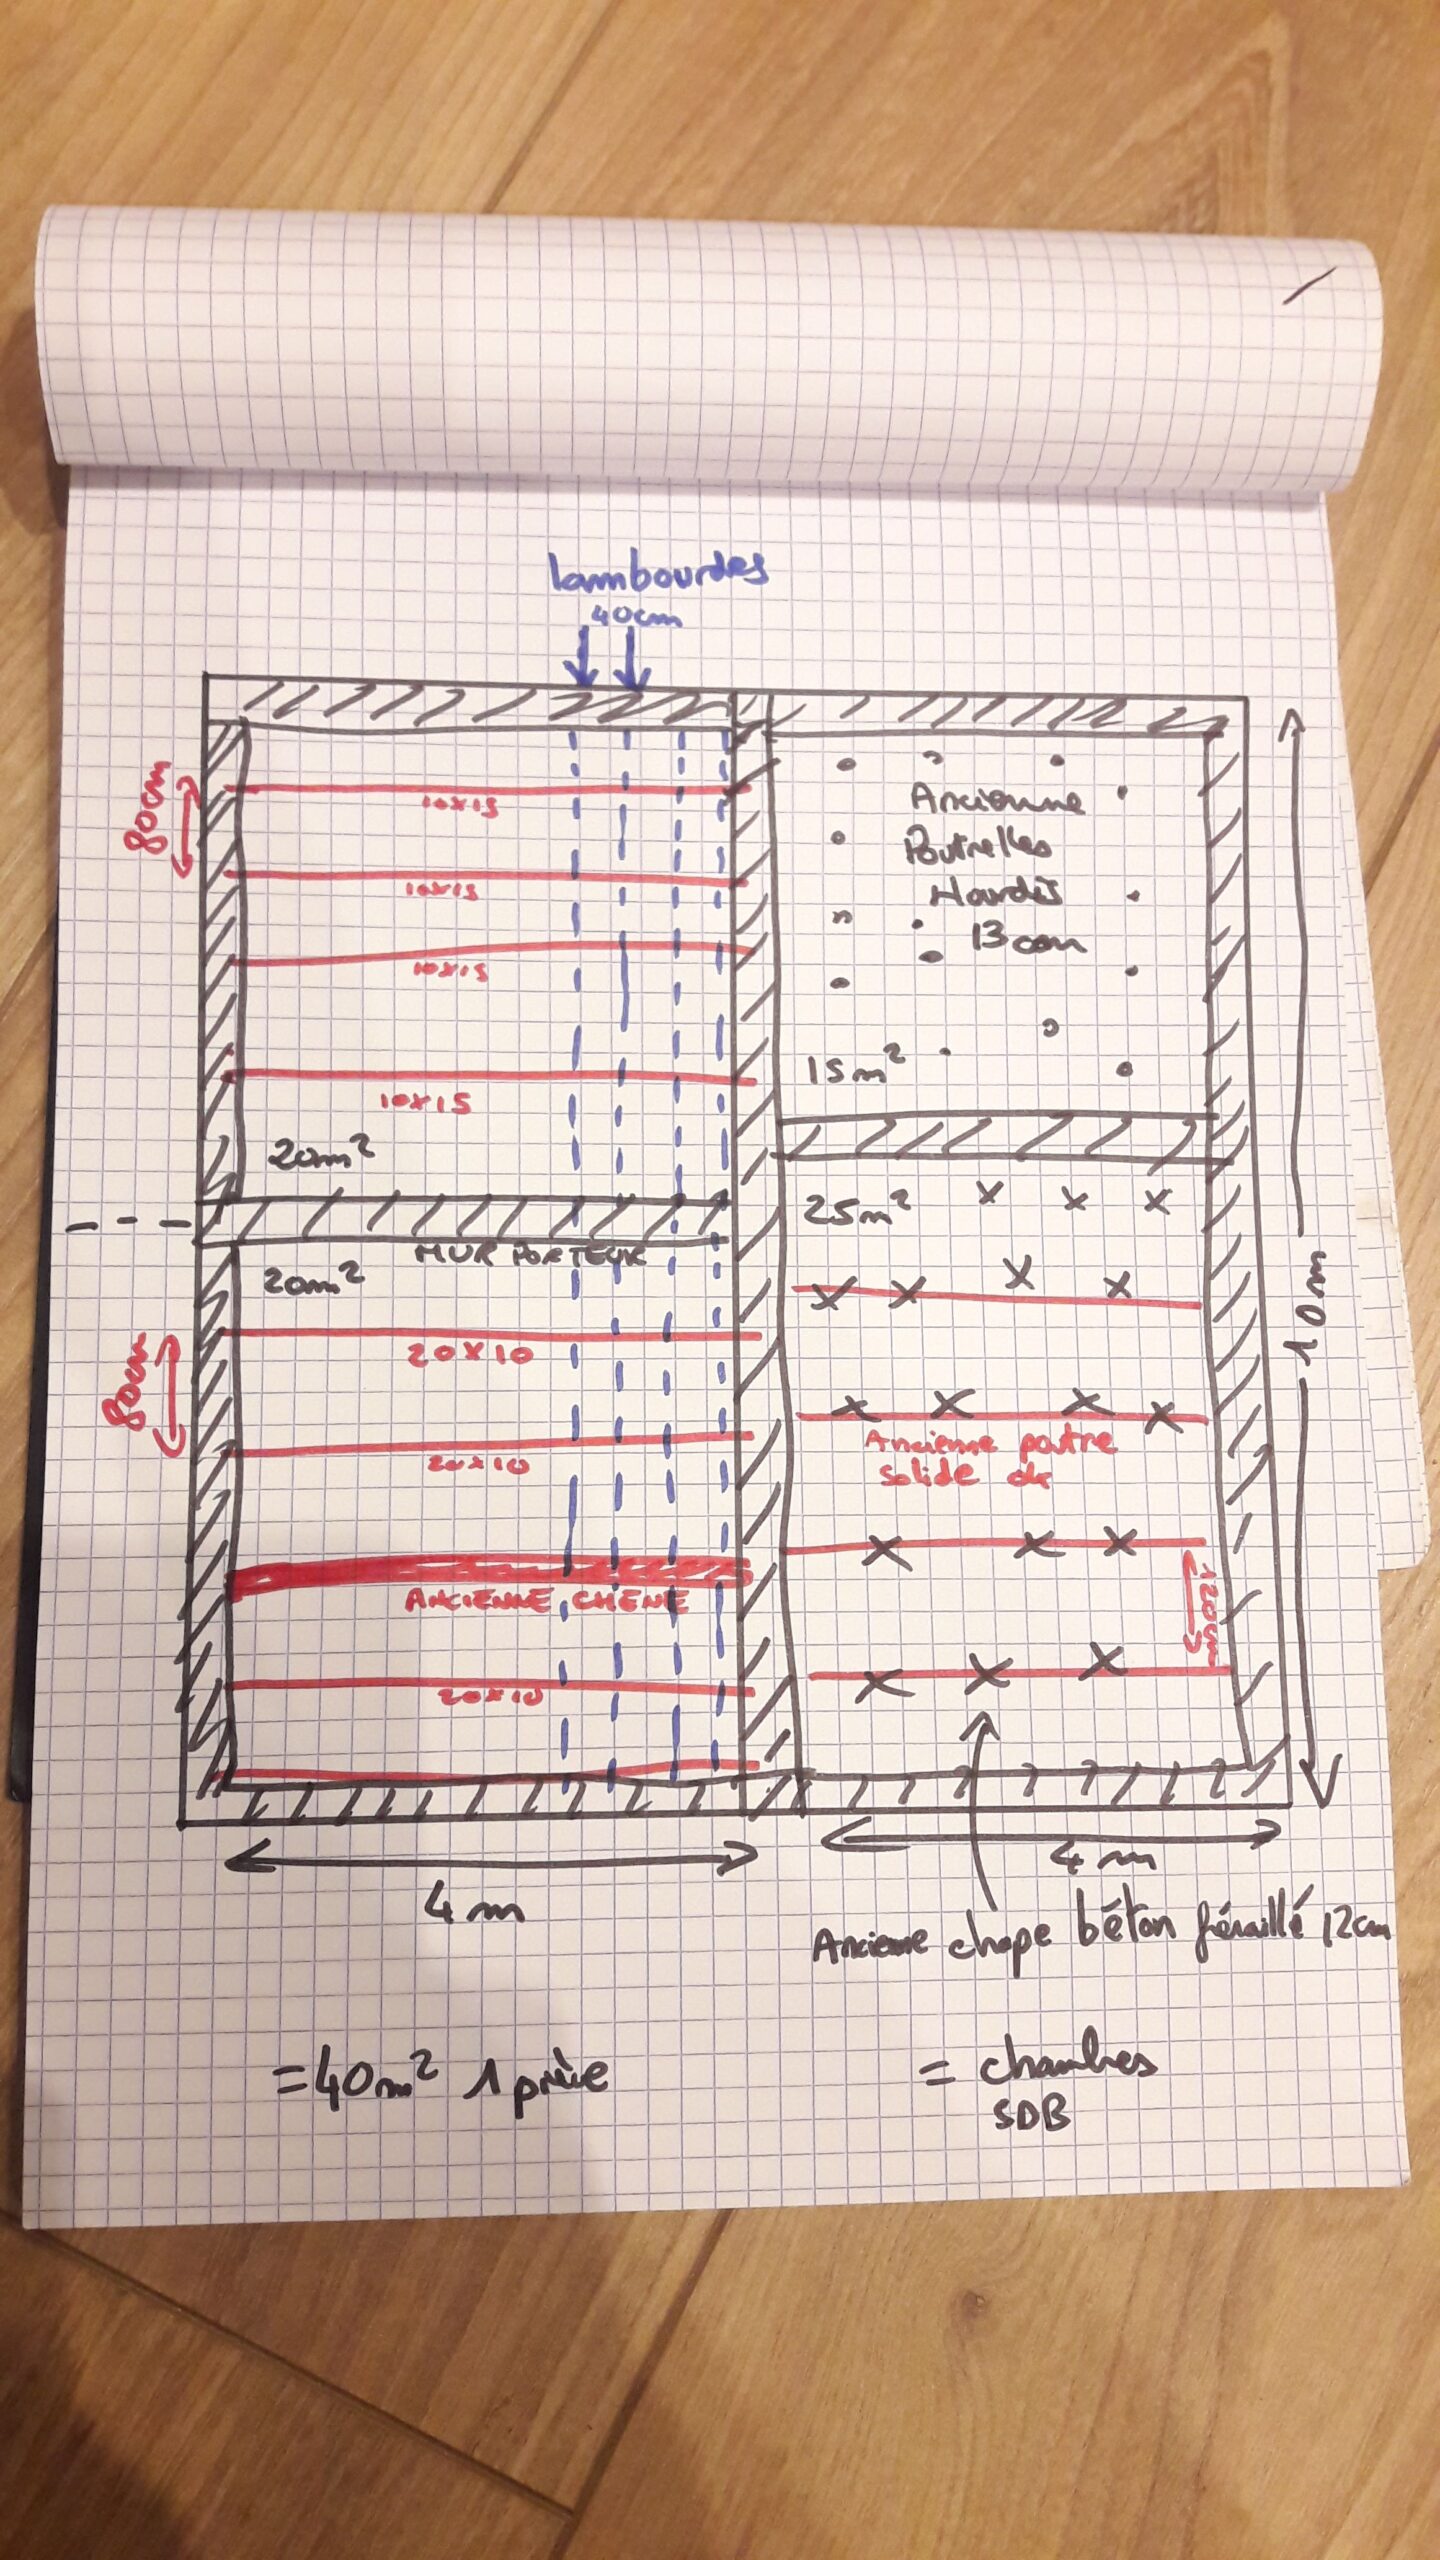 lambourdes
40cm
80cm
10x15
10x15
10x15
10x15
20m²
Ancienne
Poutrelles
Hourdis
13 cm
15m²
MUR PORTEUR
20m²
80cm
20x10
20x10
ANCIENNE CHENE
20x10
25m²
Ancienne poutre
solide ok
120cm
10m
4m
4m
Ancienne chape béton féraillé 12cm
=40m² 1 pièce
= chambres
SDB